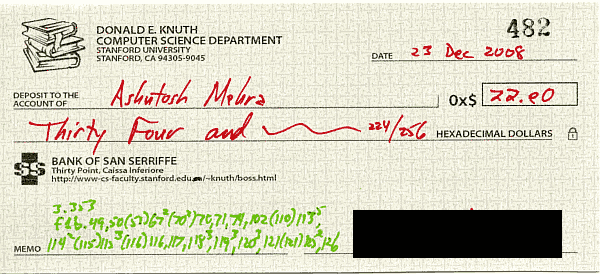 482
DONALD E. KNUTH
COMPUTER SCIENCE DEPARTMENT
STANFORD UNIVERSITY
STANFORD, CA 94305-9045
DATE 23 Dec 2008
DEPOSIT TO THE
ACCOUNT OF Ashutosh Mehra 0x$ 22.e0
Thirty Four and 224/256 HEXADECIMAL DOLLARS
BANK OF SAN SERRIFFE
Thirty Point, Caissa Inferiore
http://www-cs-faculty.stanford.edu/~knuth/boss.html
3.353
49, 50(57)67²(70²)70,71,79,102(110)113⁵,
MEMO 114²(115)115³(116)116,117,118³,119³,120³,